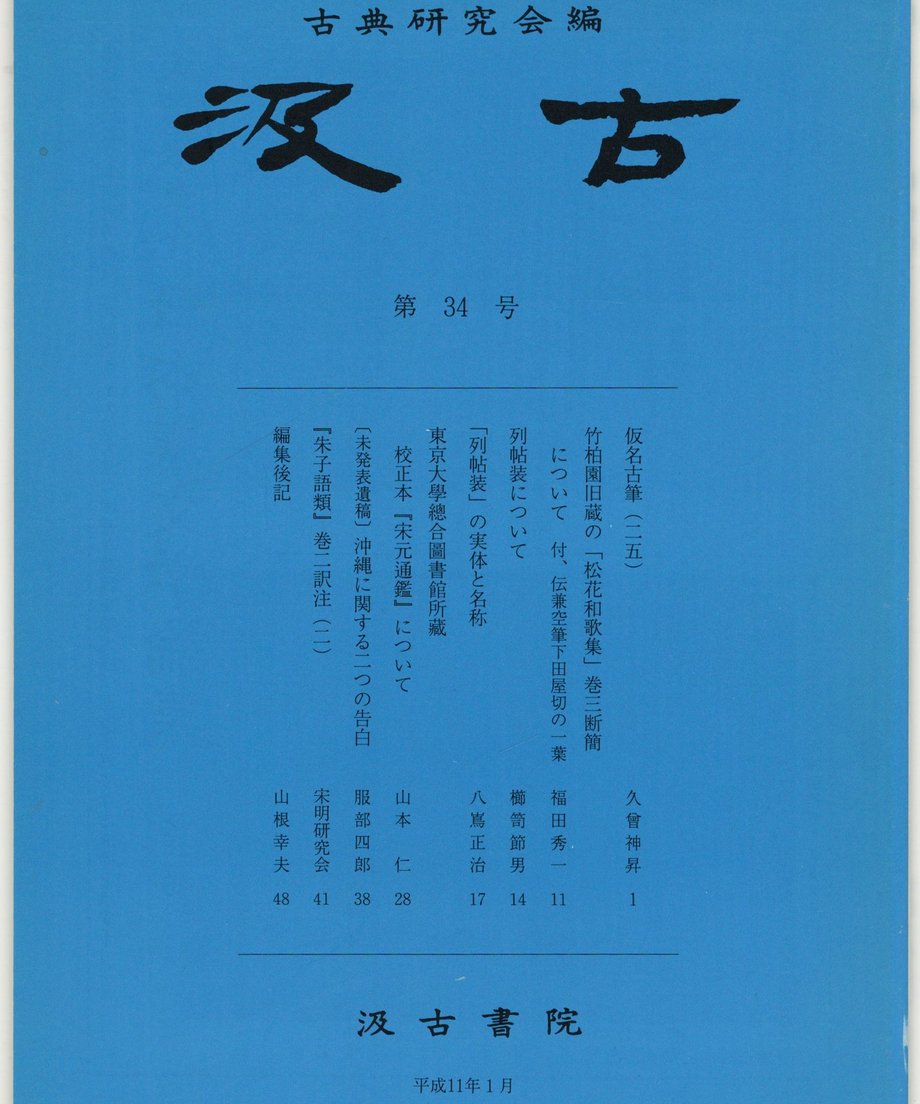 古典研究会編
汲古
第 34 号
仮名古筆（二五） 久曾神昇 1
竹柏園旧蔵の「松花和歌集」巻三断簡
について 付、伝兼空筆下田屋切の一葉 福田秀一 11
列帖装について 櫛笥節男 14
「列帖装」の実体と名称 八嶌正治 17
東京大學總合圖書館所藏
校正本『宋元通鑑』について 山本 仁 28
〔未発表遺稿〕沖縄に関する二つの告白 服部四郎 38
『朱子語類』巻二訳注（二） 宋明研究会 41
編集後記 山根幸夫 48
汲古書院
平成11年1月